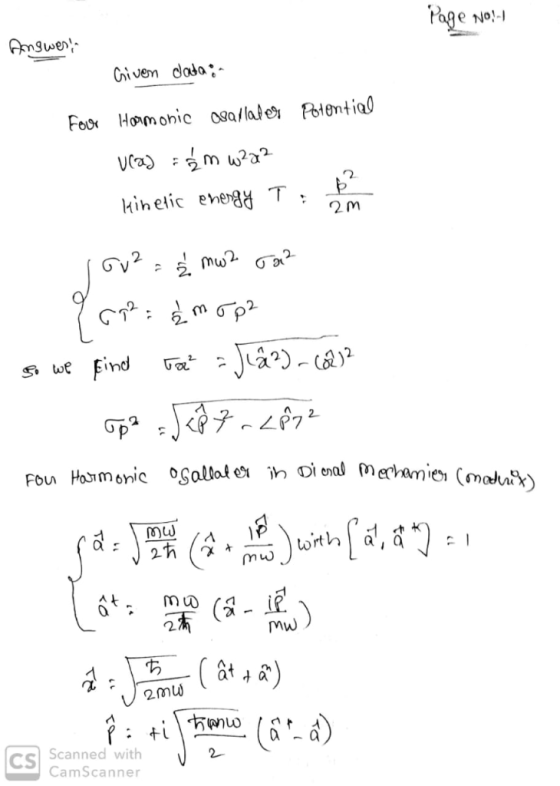 Page No:-1
Answer:-
Given data:-
Four Harmonic osallater Potential
V(x) = 1/2 m w²x²
Kinetic energy T = p²/2m
σv² = 1/2 mw² σx²
σT² = 1/2 m σp²
so we Find σx² = √(⟨x̂²⟩ - (x̂)²
σp² = √<p̂>² - <p̂>²
Four Harmonic Osallater in Dioral Mechanier (madrix)
â = √mw/2ħ (x̂ + ip̂/mw) with [â, â⁺] = 1
â† = mw/2ħ (x̂ - ip̂/mw)
x̂ = √ħ/2mw (â† + â)
p̂ = +i √ħmw/2 (â† - â)
CS Scanned with
CamScanner